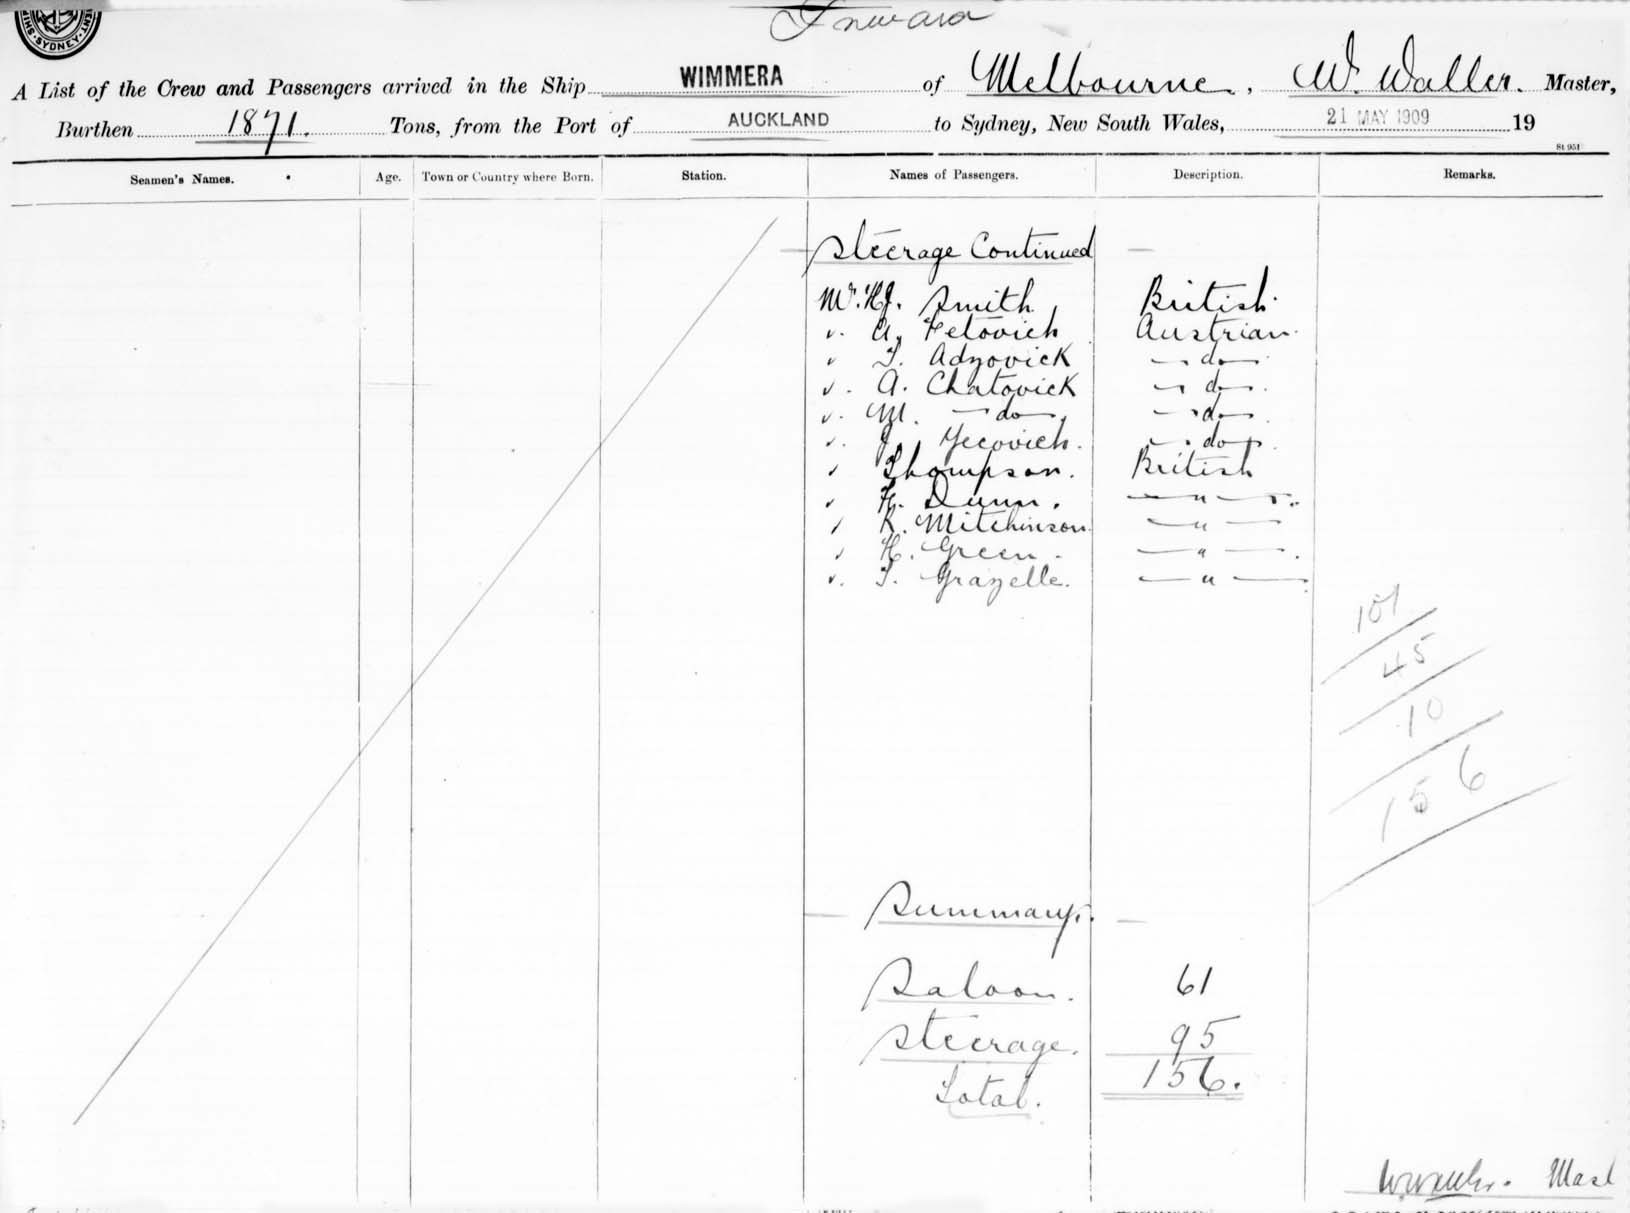 SYDNEY
Inward
A List of the Crew and Passengers arrived in the Ship WIMMERA of Melbourne, W. Waller. Master,
Burthen 1871. Tons, from the Port of AUCKLAND to Sydney, New South Wales, 21 MAY 1909 19
St 951
Seamen's Names. Age. Town or Country where Born. Station. Names of Passengers. Description. Remarks.
Steerage Continued
Mr. H.J. Smith British
" A. Petovich Austrian
" T. Adzovick - do -
" A. Chatovick - do -
" M. - do - - do -
" J. Yecovich. - do -
" Thompson. British
" H. Dunn. - " -
" R. Mitchinson. - " -
" H. Green. - " -
" T. Grazelle. - " -
101
45
10
156
Summary.
Saloon. 61
Steerage. 95
Total. 156.
W. Waller. Mast